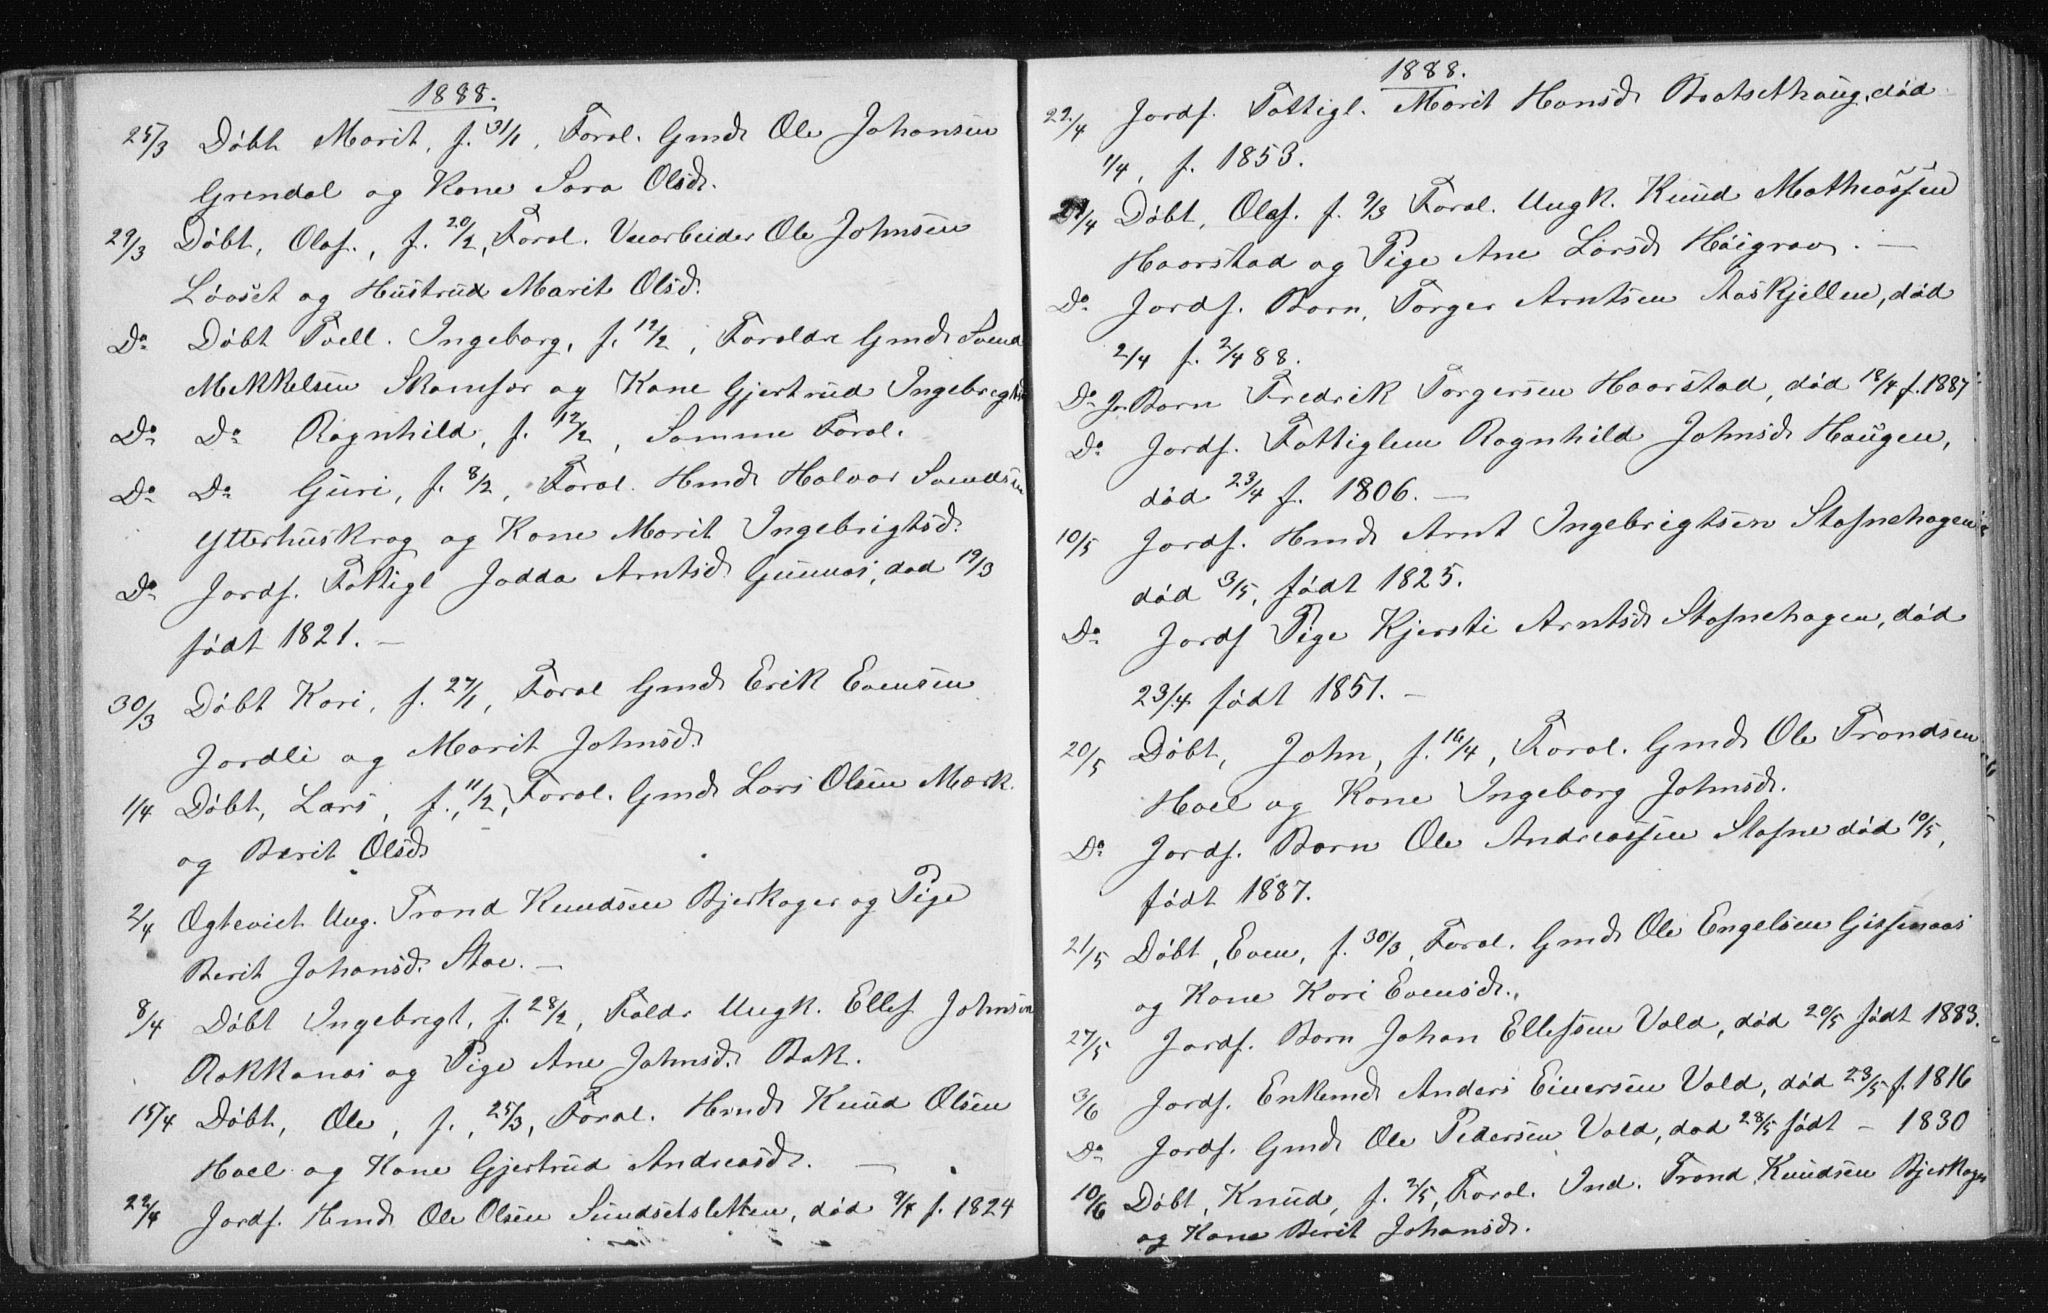 1888.
25/3 Døbt Marit, f. 31/1, Foræl. Gmd. Ole Johansen
Grendal og Kone Sara Olsd.
29/3 Døbt, Olaf., f. 20/2, Foræl. Veiarbeider Ole Johnsen
Løvset og Hustrud Marit Olsd.
Do Døbt Tvell. Ingeborg, f. 12/2, Forældre Gmd. Svend
Mikkelsen Skamfær og Kone Gjertrud Ingebrigtsd
Do Do Ragnhild, f. 12/2, Samme Foræl.
Do Do Guri, f. 8/2, Foræl. Hmd. Halvor Svendsen
Ytterhuskrog og Kone Marit Ingebrigtsd.
Do Jordf. Fattigl Jødda Arntsd Gunnæs, død 19/3
født 1821. —
30/3 Døbt Kari, f. 27/1, Foræl Gmd. Erik Evensen
Jordli og Marit Johnsd.
1/4 Døbt, Lars, f., 11/2, Foræl. Gmd. Lars Olsen Mærk.
og Berit Olsd.
2/4 Ægteviet Ung. Trond Knudsen Bjerkager og Pige
Berit Johansd. Stae. —
8/4 Døbt Ingebrigt, f. 28/2, Fældr Ungk. Ellef Johnsen
Rokkonæs og Pige Ane Johnsd. Bak.
15/4 Døbt, Ole, f., 25/3, Foræl. Hmd. Knud Olsen
Hoel og Kone Gjertrud Andreasd. —
22/4 Jordf. Hmd. Ole Olsen Sundsetsletten, død 9/4 f. 1824
1888.
22/4 Jordf. Fattigl. Marit Hansd. Baatsethaug, død
1/4, f. 1853.
29/4 Døbt, Olaf. f. 9/3 Foræl. Ungk. Knud Mathiassen
Haarstad og Pige Ane Larsd. Høigrav. —
Do Jordf. Barn, Torger Arntsen Aaskjellen, død
2/4 f. 2/4 88.
Do Jr. Barn Fredrik Torgersen Haarstad, død 18/4 f. 1887
Do Jordf. Fattiglem Ragnhild Johnsd. Haugen,
død 23/4 f. 1806. —
10/5 Jordf. Hmd. Arnt Ingebrigtsen Stafnehagen
død 3/5, født 1825.
Do Jordf Pige Kjersti Arntsd. Stafnehagen, død
23/4 født 1851. —
20/5 Døbt, John, f. 16/4, Foræl. Gmd. Ole Trondsen
Hoel og Kone Ingeborg Johnsd.
Do Jordf. Barn Ole Andreassen Stafne død 10/5,
født 1887.
21/5 Døbt, Even, f. 30/3, Foræl. Gmd. Ole Engelsen Gissinaas
og Kone Kari Evensd.,
27/5 Jordf. Barn Johan Ellefsen Vold, død 20/5 født 1883.
3/6 Jordf. Enkemd. Anders Einersen Vold, død 23/5 f. 1816
Do Jordf. Gmd. Ole Pedersen Vold, død 28/5 født — 1830
10/6 Døbt, Knud, f. 2/5, Foræl. Ind. Trond Knudsen Bjerkager
og Kone Berit Johansd.